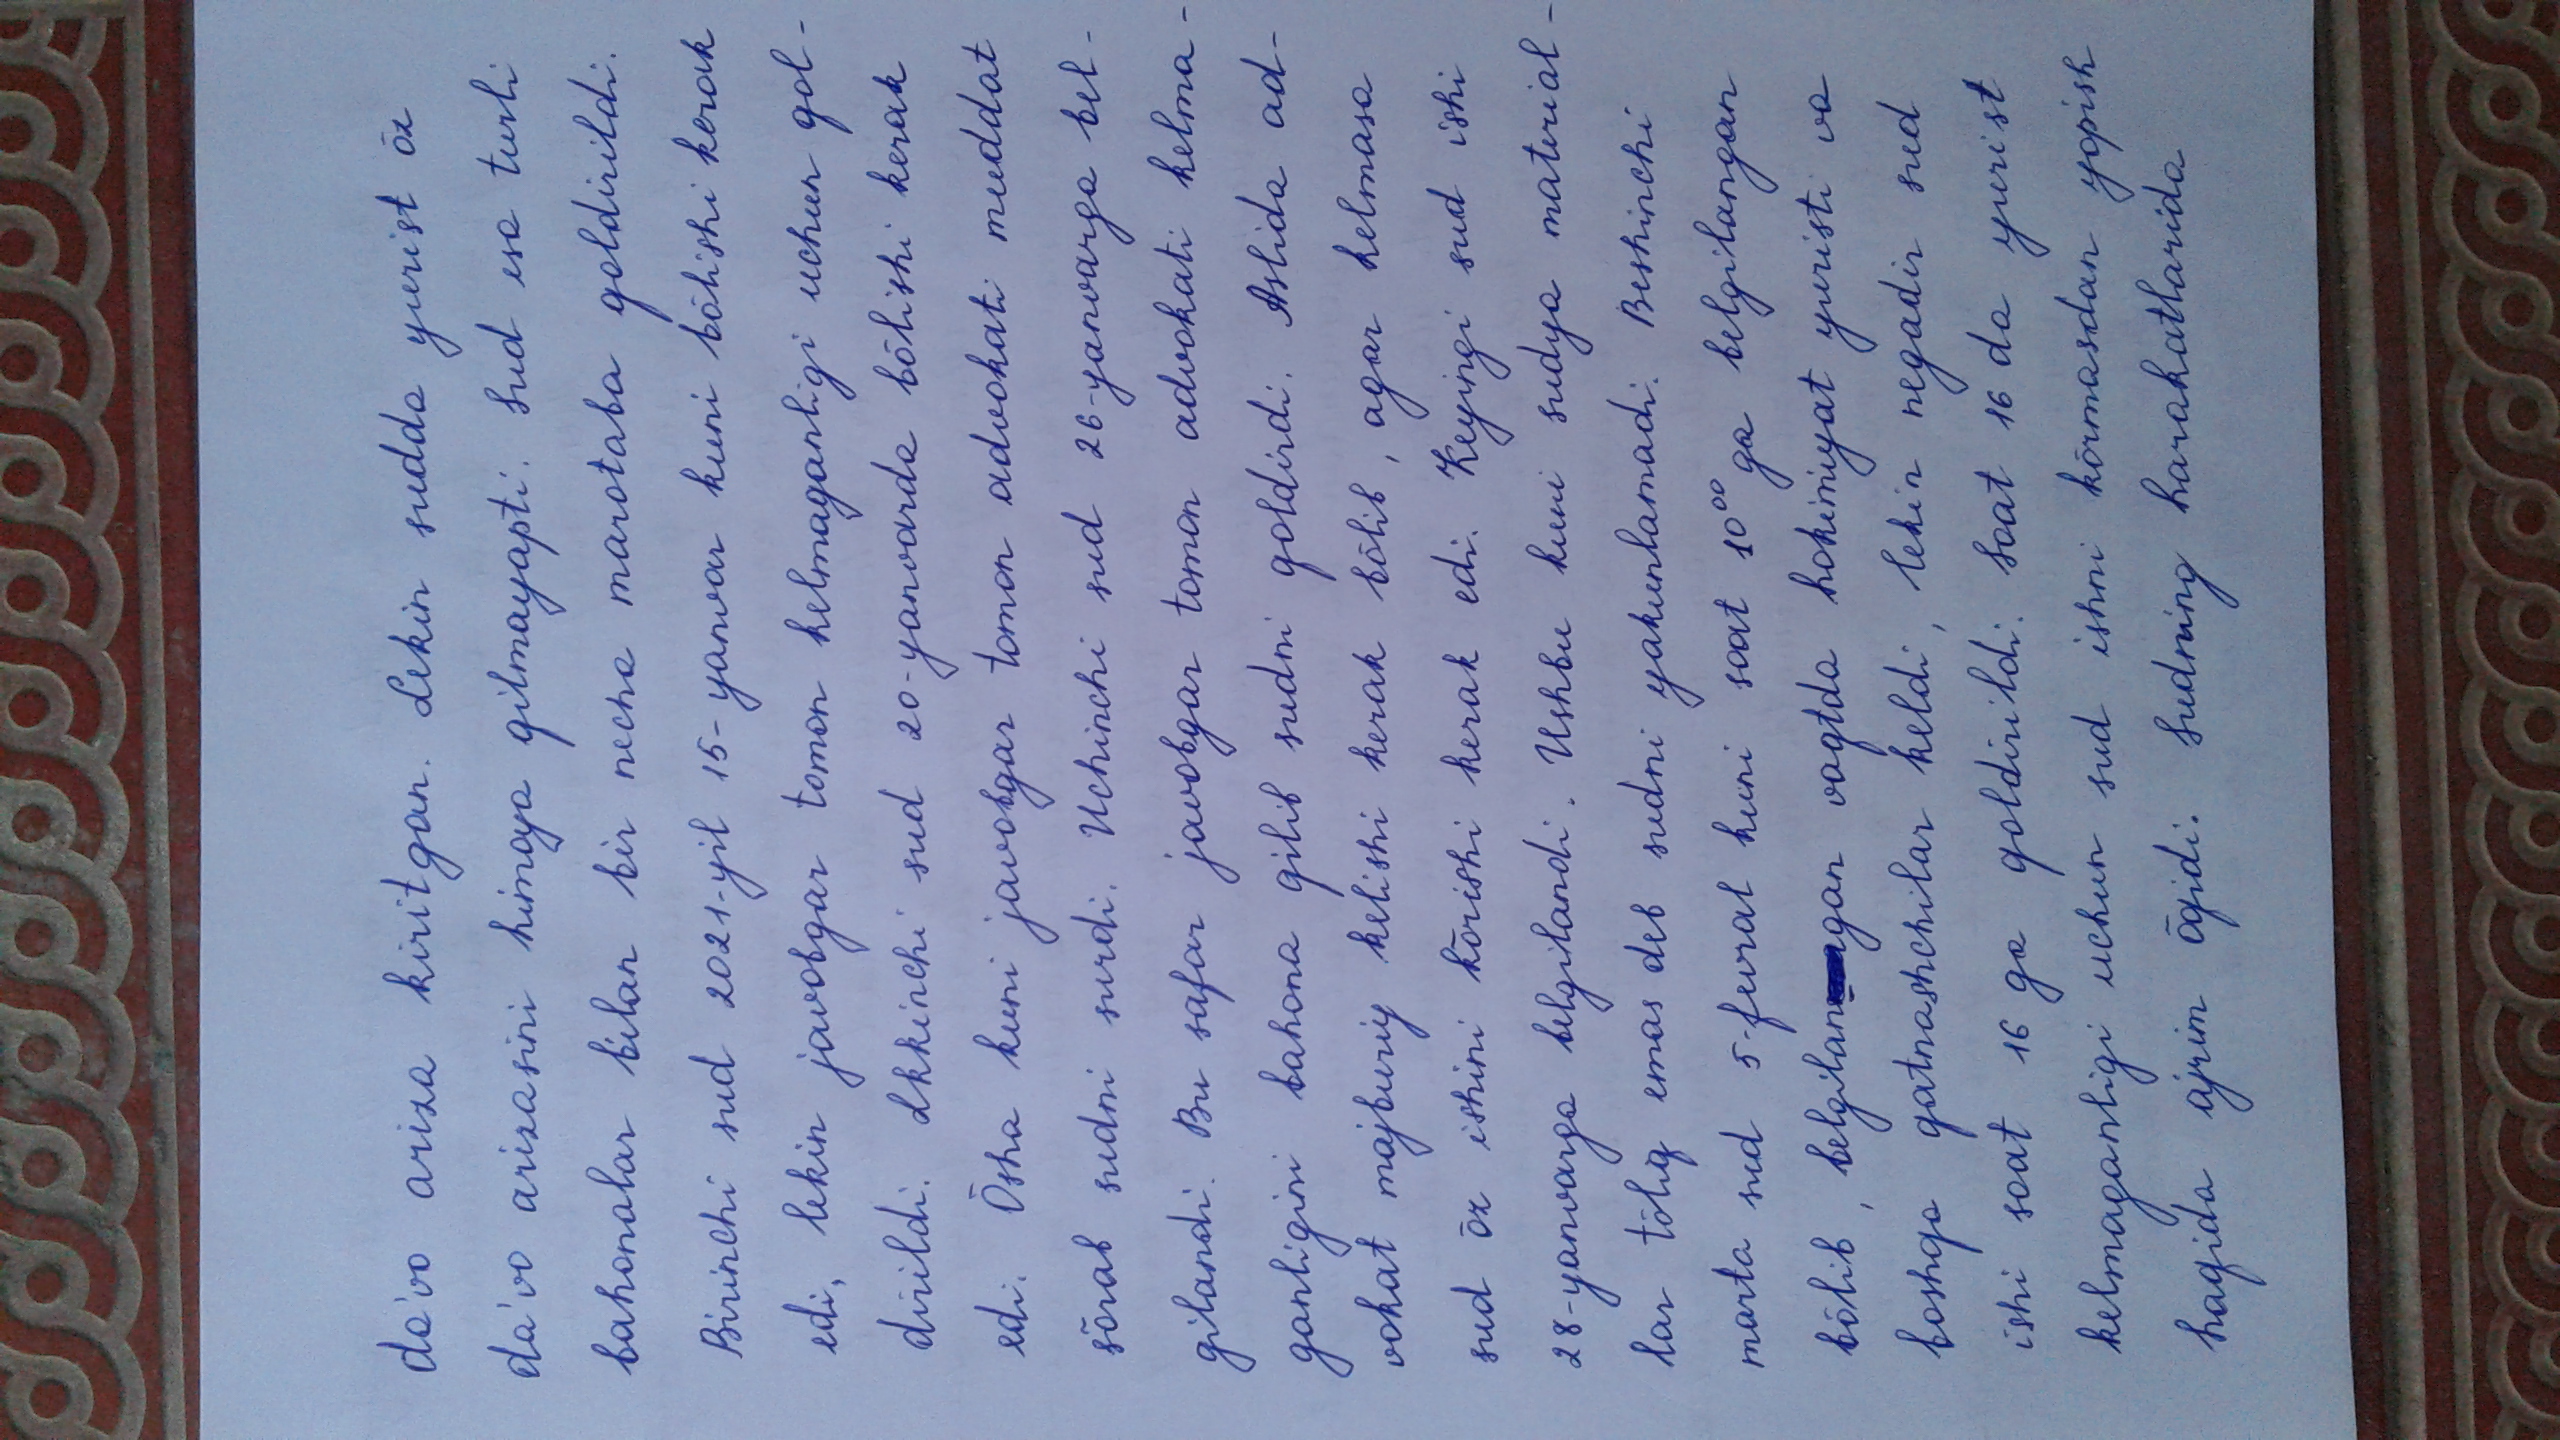 da'vo ariza kiritgan. Lekin sudda yurist ōz
da'vo arizasini himoya qilmayapti. Sud esa turli
bahonalar bilan bir necha marotaba qoldirildi.
Birinchi sud 2021-yil 15-yanvar kuni bōlishi kerak
edi, lekin javobgar tomon kelmaganligi uchun qol-
dirildi. Ikkinchi sud 20-yanvarda bōlishi kerak
edi. Ōsha kuni javobgar tomon advokati muddat
sōrab sudni surdi. Uchinchi sud 26-yanvarga bel-
gilandi. Bu safar javobgar tomon advokati kelma-
ganligini bahona qilib sudni qoldirdi. Aslida ad-
vokat majburiy kelishi kerak bōlib, agar kelmasa
sud ōz ishini kōrishi kerak edi. Keyingi sud ishi
28-yanvarga belgilandi. Ushbu kuni sudya material-
lar tōliq emas deb sudni yakunlamadi. Beshinchi
marta sud 5-fevral kuni soat 10⁰⁰ ga belgilangan
bōlib, belgilangan vaqtda hokimiyat yuristi va
boshqa qatnashchilar keldi, lekin negadir sud
ishi soat 16 ga qoldirildi. Soat 16 da yurist
kelmaganligi uchun sud ishni kōrmasdan yopish
haqida ajrim ōqidi. Sudning harakatlarida